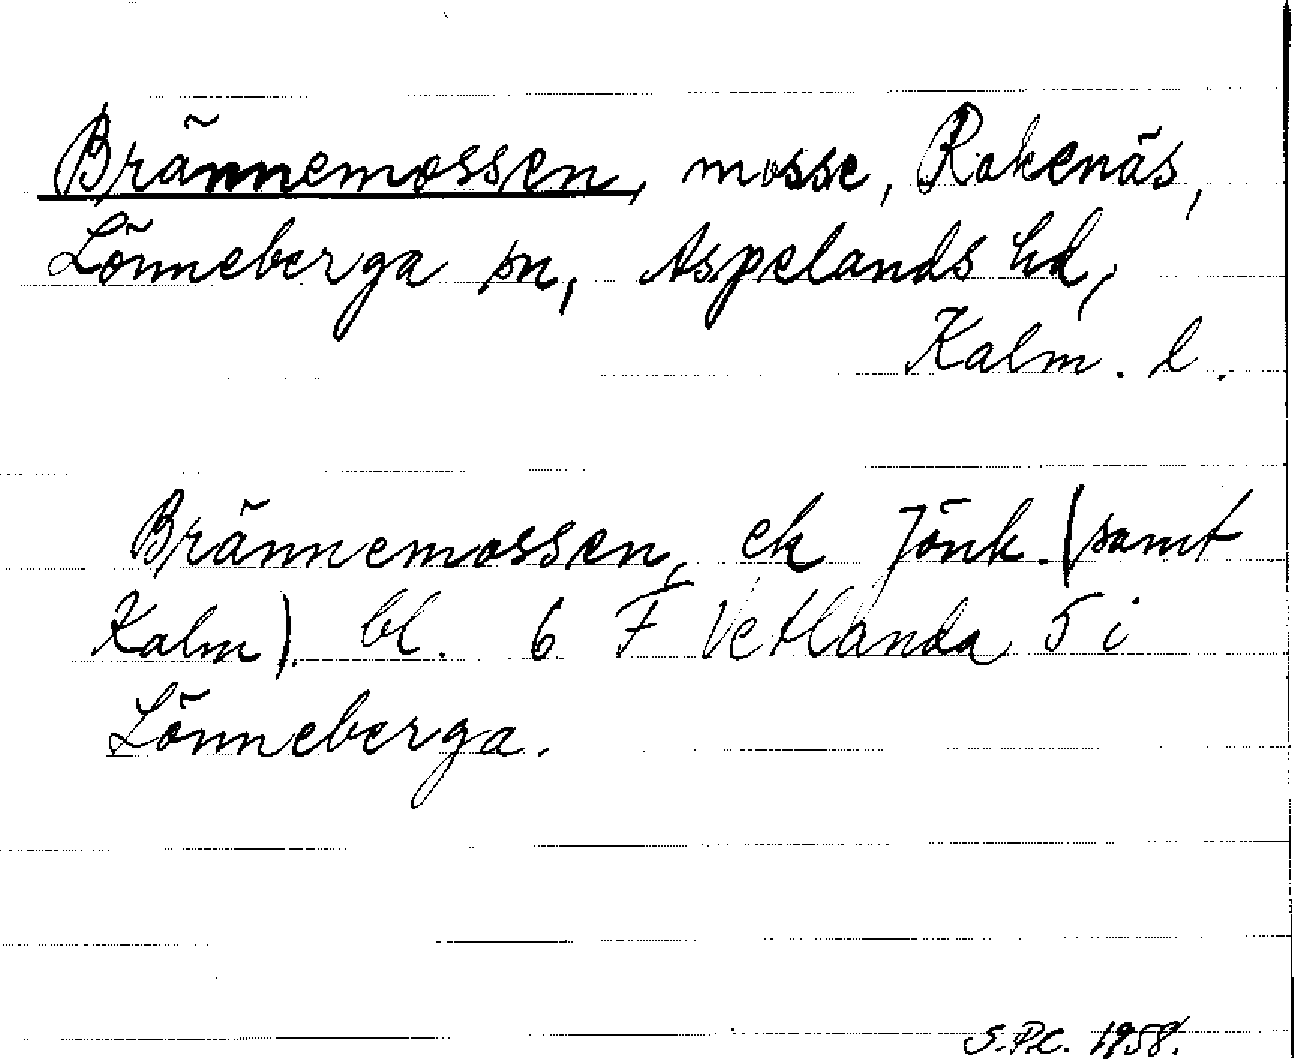 Brännemossen, mosse, Rokenäs,
Lönneberga sn, Aspelands hd,
Kalm. l.
Brännemossen, ek Jönk. (samt
Kalm). bl. 6 F Vetlanda 5 i
Lönneberga.
S.P.C. 1958.